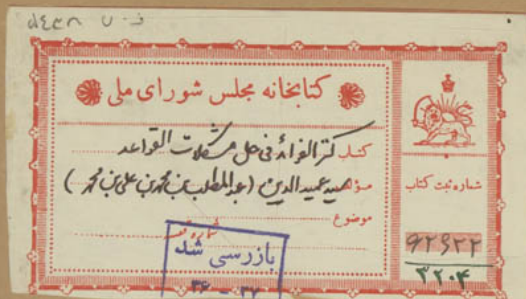 کتابخانه مجلس شورای ملی
کتاب کنز الفوائد فی حل مشکلات القواعد
مؤلف سید عمید الدین (عبدالمطلب بن محمد بن علی بن محمد)
موضوع
شماره
بازرسی شد
۳۶ - ۳۷
شماره ثبت کتاب
۳۲۰۴